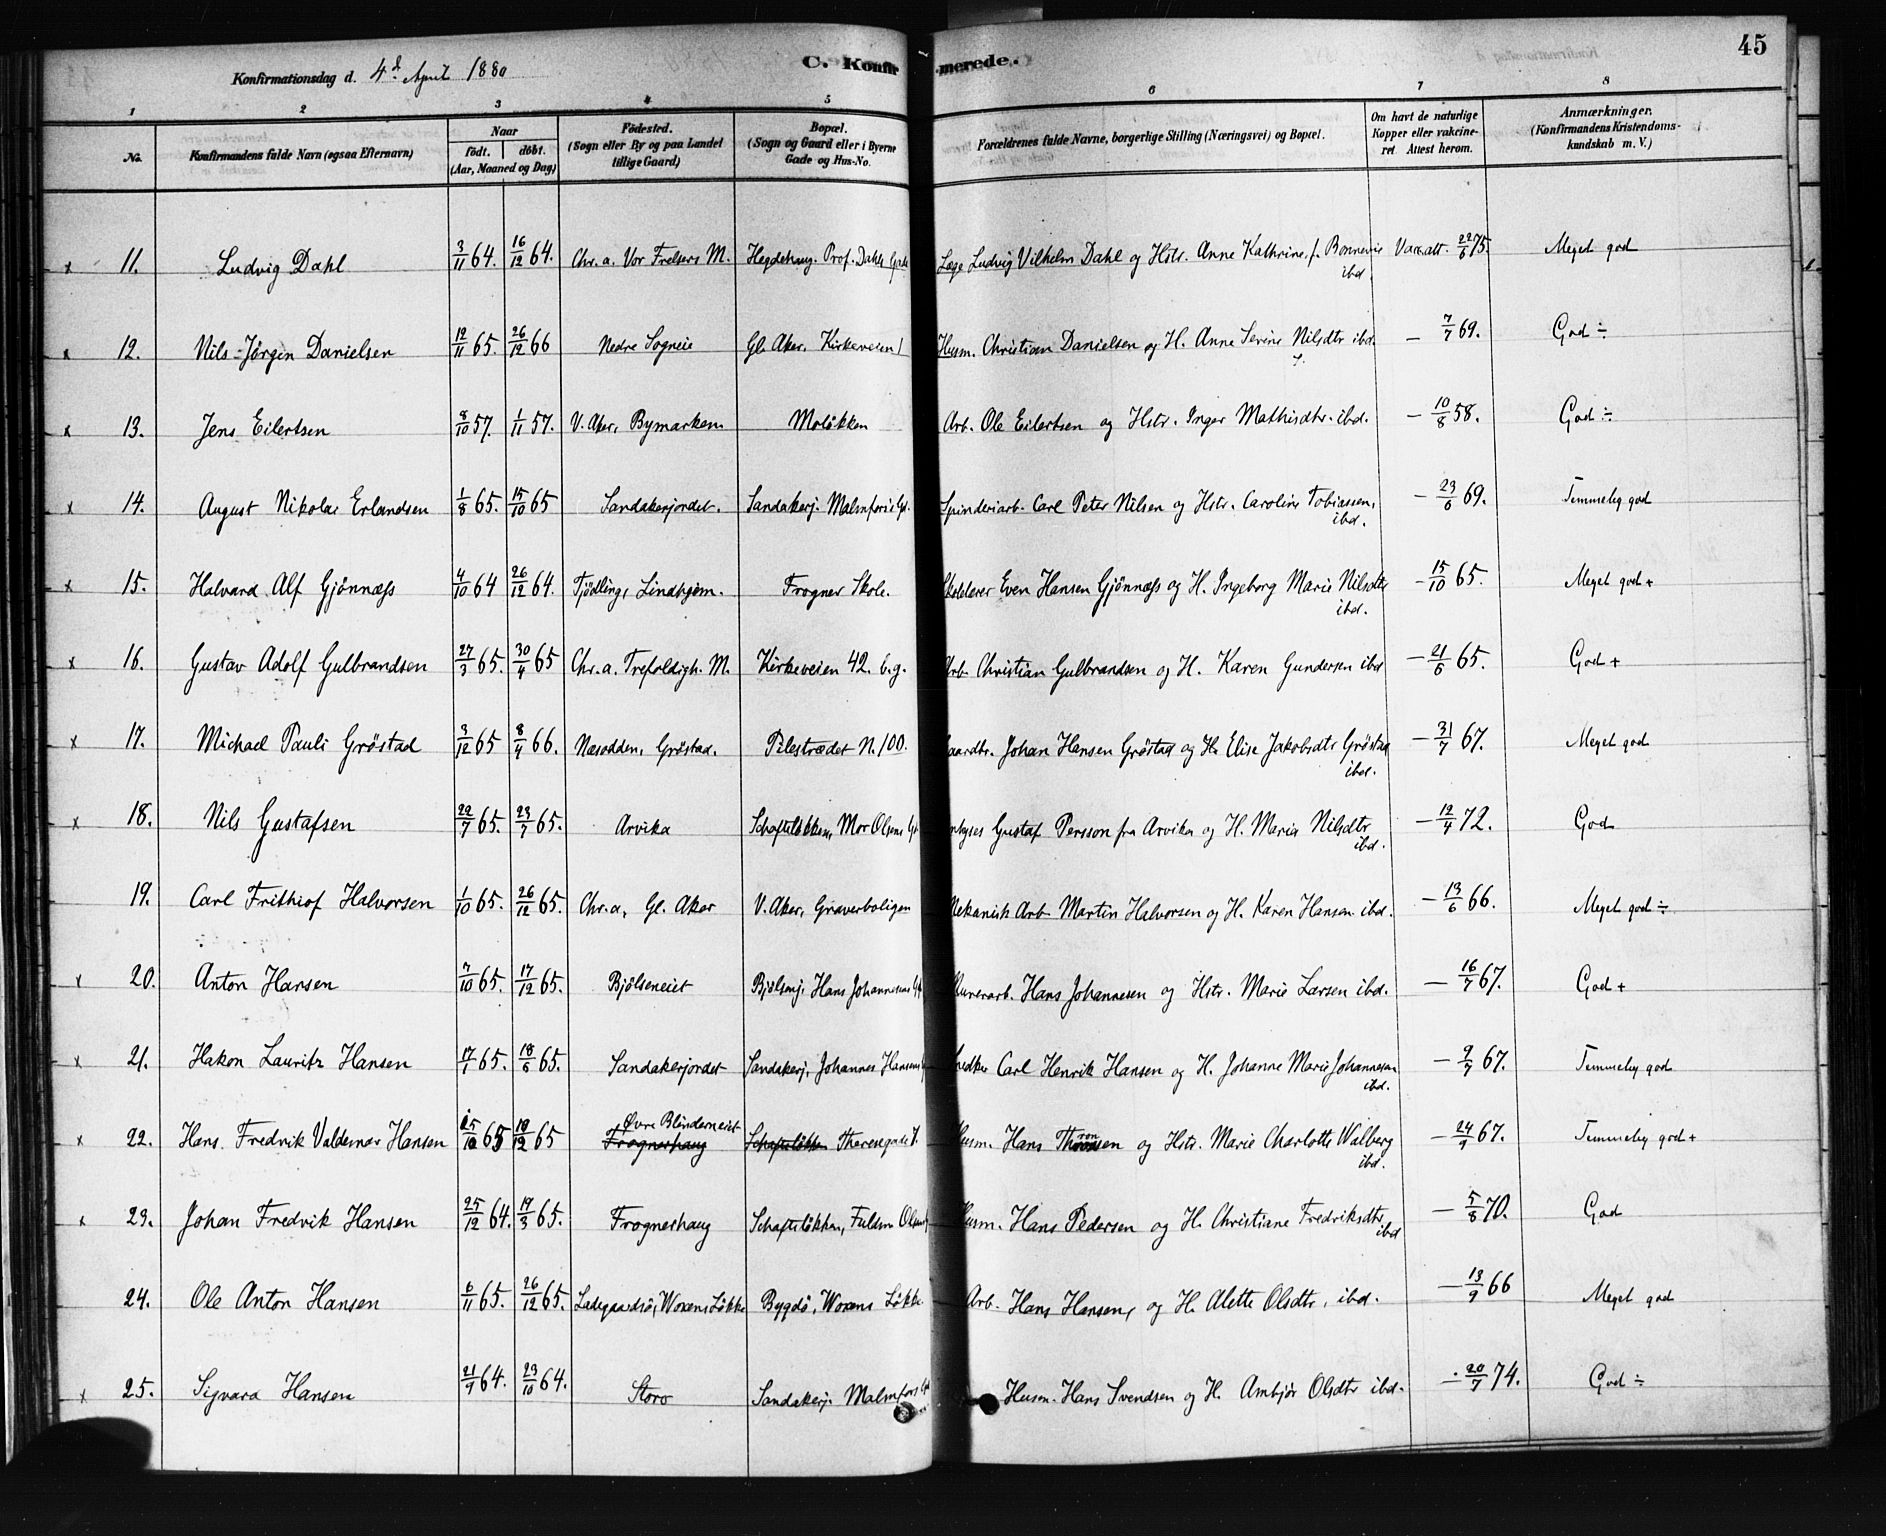 45
Konfirmationsdag d. 4de April 1880
C. Konfirmerede.
1 2 3 4 5 6 7 8
No. Konfirmandens fulde Navn (ogsaa Efternavn) Naar født. døbt. (Aar, Maaned og Dag) Fødested. (Sogn eller By og paa Landet tillige Gaard) Bopæl. (Sogn og Gaard eller i Byerne Gade og Hus-No. Forældrenes fulde Navne, borgerlige Stilling (Næringsvei) og Bopæl. Om havt de naturlige Kopper eller vakcineret Attest herom. Anmærkninger. (Konfirmandens Kristendomskundskab m. V.)
x 11. Ludvig Dahl 3/11 64. 16/12 64. Chr.a. Vor Frelsers M. Hegdehaug. Prof. Dahls Gade Læge Ludvig Vilhelm Dahl og Hstr. Anne Kathrine, f. Bonnevie ibd. Vaccatt. 22/6 75. Meget god
x 12. Nils Jørgen Danielsen 19/11 65. 26/12 66 Nedre Sogneie Gl. Aker, Kirkeveien 1 Husm. Christian Danielsen og H. Anne Serine Nilsdtr ibd. — 7/7 69. God ÷
x 13. Jens Eilertsen 8/10 57. 1/11 57. V. Aker, Bymarken Moløkken Arb. Ole Eilertsen og Hstr. Inger Mathisdtr. ibd. — 10/8 58. God ÷
x 14. August Nikolai Erlandsen 1/8 65. 15/10 65 Sandakerjordet. Sandakerj. Malmfors's Gd. Spinderiarb. Carl Peter Nilsen og Hstr. Caroline Tobiassen, ibd. — 23/6 69. Temmelig god
x 15. Halvard Alf Gjønnæss 4/10 64 26/12 64. Tjødling, Lindhjem. Frogner Skole. Skolelærer Even Hansen Gjønnæss og H. Ingeborg Marie Nilsdtr ibd. — 15/10 65. Meget god +
x 16. Gustav Adolf Gulbrandsen 27/3 65. 30/4 65 Chr.a. Trefoldigh. M. Kirkeveien 42. b.g. Arb. Christian Gulbrandsen og H. Karen Gundersen ibd — 21/6 65. God +
x 17. Michael Pauli Grøstad 3/12 65 8/4 66. Næsodden, Grøstad. Pilestrædet N. 100. Gaardbr. Johan Hansen Grøstad og H. Elise Jakobsdtr Grøstad ibd. — 31/7 67. Meget god
x 18. Nils Gustafsen 22/7 65. 23/7 65. Arvika Schafteløkken, Mor Olsens Gd. Gustaf Persson fra Arvika og H. Maria Nilsdtr ibd. — 12/4 72. God
19. Carl Frithiof Halvorsen 1/10 65. 26/12 65. Chr.a, Gl. Aker V. Aker, Graverboligen Mekanisk Arb. Martin Halvorsen og H. Karen Hansen ibd. — 13/6 66. Meget god ÷
x 20. Anton Hansen 7/10 65. 17/12 65. Bjølseneiet Bjølsenj. Hans Johannesens Gd. Murerarb. Hans Johannesen og Hstr. Marie Larsen ibd. — 16/7 67. God +
x 21. Hakon Lauritz Hansen 17/1 65. 18/6 65. Sandakerjordet Sandakerj. Johannes Hansens Snedker Carl Henrik Hansen og H. Johanne Marie Johannesen ibd. — 9/7 67. Temmelig god
x 22. Hans Fredrik Valdemar Hansen 25/10 65 10/12 65 Øvre Blinderneiet Frognerhaug Schafteløkken Theresegade 7. Husm. Hans Thoresen og Hstr. Marie Charlotte Walberg ibd. — 24/9 67. Temmelig god +
x 23. Johan Fredrik Hansen 25/12 64. 19/3 65. Frognerhaug Schafteløkken, Fuldm. Olsens Husm. Hans Pedersen og H. Christiane Fredriksdtr ibd — 5/8 70. God
24. Ole Anton Hansen 6/11 65. 26/12 65. Ladegaardsø, Woxens Løkke Bygdø, Woxens Løkke. Arb. Hans Hansen, og H. Alette Olsdtr, ibd. — 13/9 66 Meget god
x 25. Sigvard Hansen 21/9 64. 23/10 64. Storo Sandakerj. Malmfors Gd Husm. Hans Svendsen og H. Ambjør Olsdtr ibd. — 20/7 74. God ÷